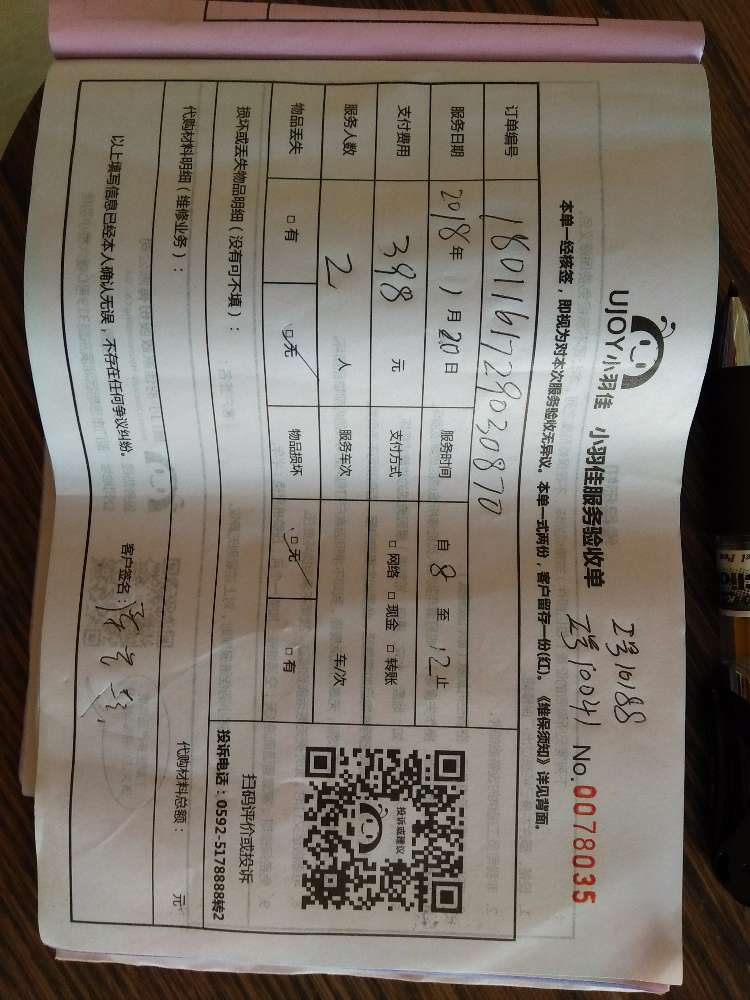 UJOY小羽佳 小羽佳服务验收单
工号10188
工号10041 No.0078035
本单一经核签，即视为对本次服务验收无异议。本单一式两份，客户留存一份(红)。《维保须知》详见背面。
订单编号 1801161729030870
服务日期 2018年 1月20日 服务时间 自 8 至 12 止
支付费用 398 元 支付方式 □ 网络 □ 现金 □ 转账
服务人数 2 人 服务车次 车/次
物品丢失 □ 有 □ 无 物品损坏 □ 无 □ 有
投诉或建议
扫码评价或投诉
投诉电话：0592-5178888转2
损坏或丢失物品明细（没有可不填）：
代购材料明细（维修业务）： 代购材料总额： 元
以上填写信息已经本人确认无误，不存在任何争议纠纷。 客户签名：